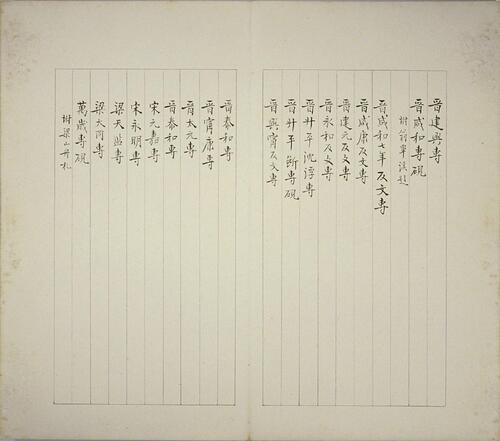 晉建興專
晉咸和專硯
晉咸和七年反文專
晉咸康反文專
晉建元反文專
晉永和反文專
晉升平沈浮專
晉升平斷專硯
晉興甯反文專
晉泰和專
晉甯康專
晉太元專
晉泰和專
宋元嘉專
宋永明專
梁天監專
梁大同專
萬歲專硯
坿梁山舟札